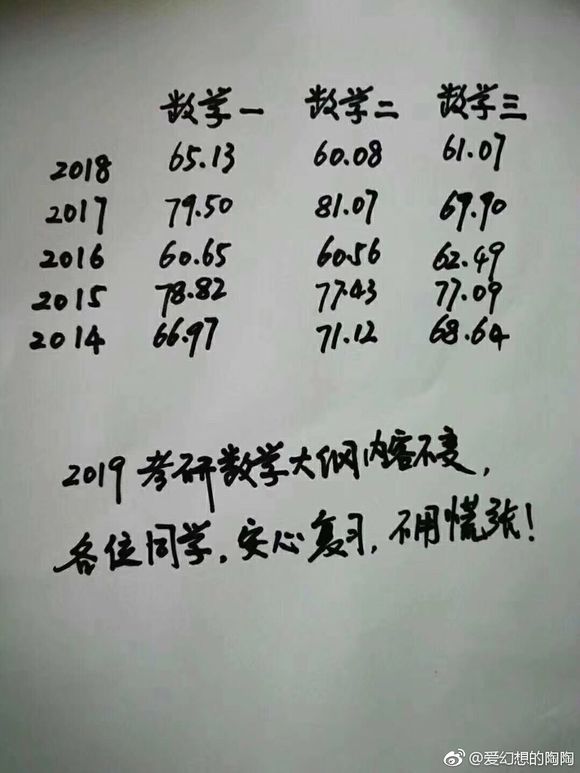 数学一 数学二 数学三
2018 65.13 60.08 61.07
2017 79.50 81.07 69.90
2016 60.65 60.56 62.49
2015 78.82 77.43 77.09
2014 66.97 71.12 68.64
2019考研数学大纲内容不变,
各位同学,安心复习,不用慌张!
@爱幻想的陶陶